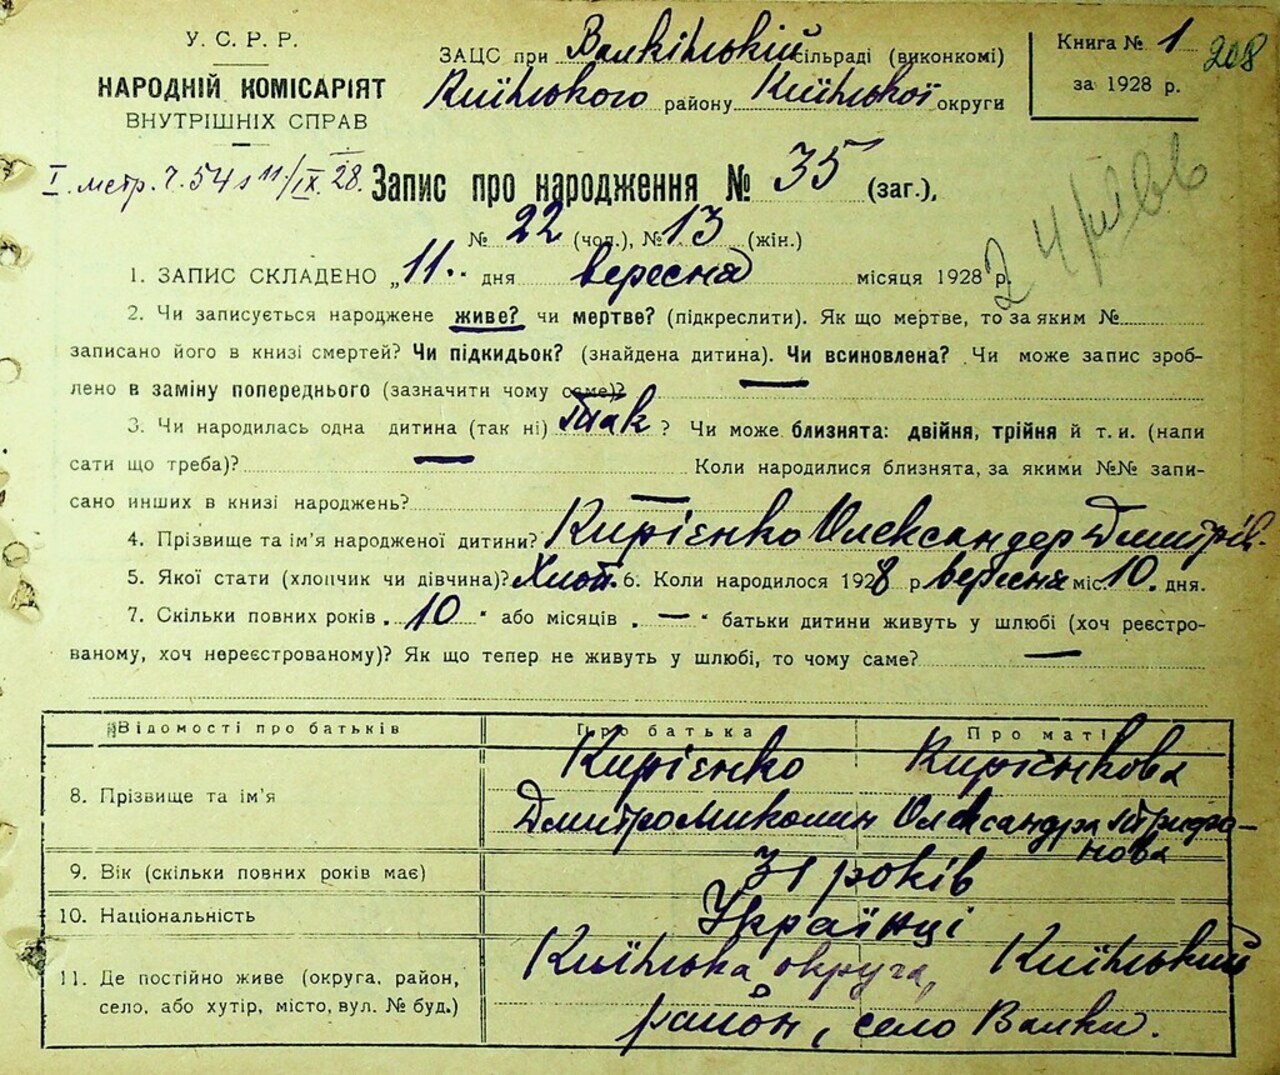 У. С. Р. Р.
НАРОДНІЙ КОМІСАРІЯТ
ВНУТРІШНІХ СПРАВ
ЗАЦС при Валківській сільраді (виконкомі)
району округи
Книга № 1 208
за 1928 р.
I. метр. ч. 54 з 11/IX. 28.
Запис про народження № 35 (заг.),
№ 22 (чол.), № 13 (жін.)
1. ЗАПИС СКЛАДЕНО „11" дня вересня місяця 1928 р.
2. Чи записується народжене живе? чи мертве? (підкреслити). Як що мертве, то за яким №
записано його в книзі смертей? Чи підкидьок? (знайдена дитина). Чи всиновлена? Чи може запис зроб-
лено в заміну попереднього (зазначити чому саме)? —
3. Чи народилась одна дитина (так ні) так ? Чи може близнята: двійня, трійня й т. и. (напи
сати що треба)? — Коли народилися близнята, за якими №№ запи-
сано инших в книзі народжень? —
4. Прізвище та ім'я народженої дитини? Кирієнко Олександер Дмитрів.
5. Якої стати (хлопчик чи дівчина)? Хлоп. 6. Коли народилося 1928 р. вересня міс. 10. дня.
7. Скільки повних років „10" або місяців „—" батьки дитини живуть у шлюбі (хоч реєстро-
ваному, хоч нереєстрованому)? Як що тепер не живуть у шлюбі, то чому саме? —
Відомості про батьків Про батька Про матір
8. Прізвище та ім'я Кирієнко Кирієнкова
Дмитро Миколин Олександра Митрофа-
нова
9. Вік (скільки повних років має) 31 років
10. Національність Українці
11. Де постійно живе (округа, район, округа,
село, або хутір, місто, вул. № буд.) район, село Валки.